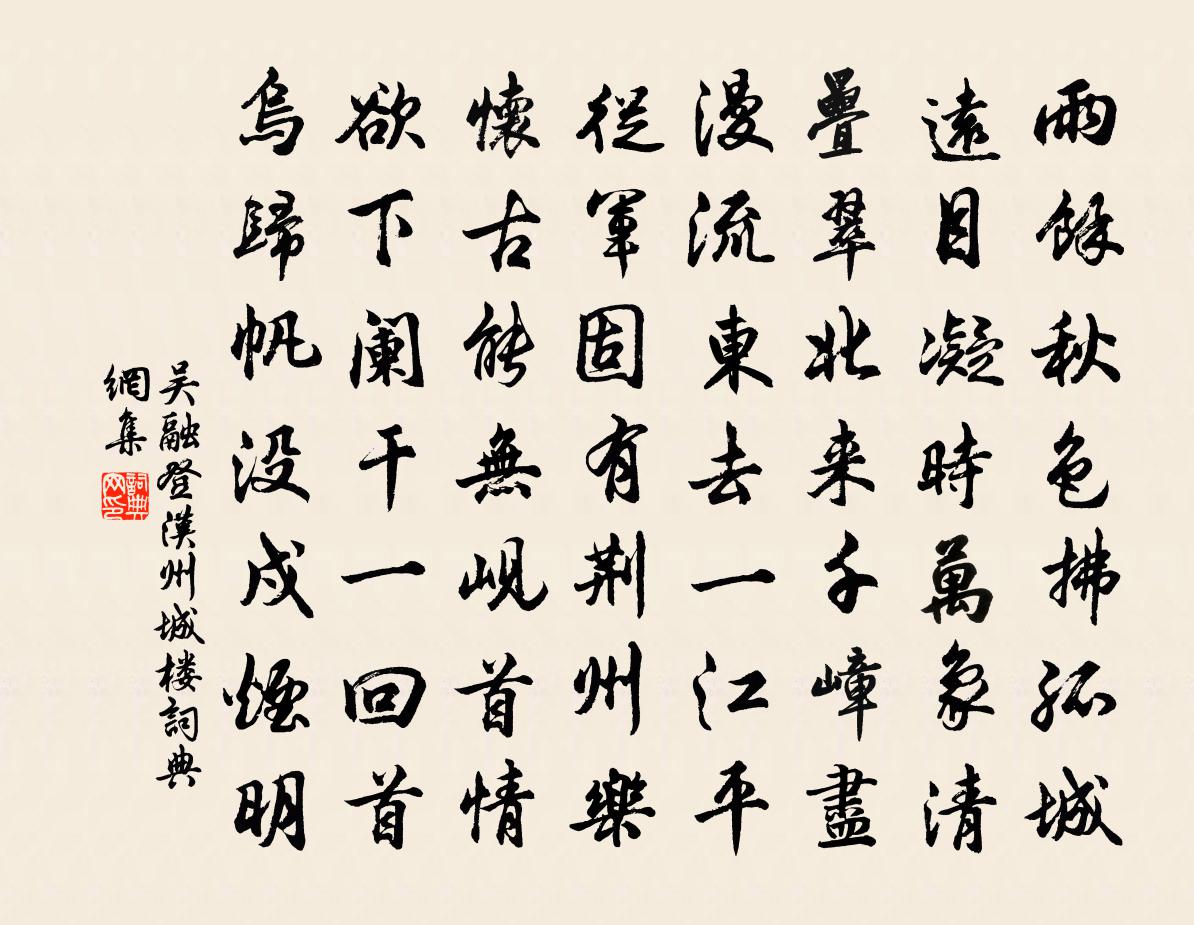 雨餘秋色拂孤城
遠目凝時萬象清
疊翠北来千嶂盡
漫流東去一江平
從軍固有荆州樂
懷古能無峴首情
欲下阑干一回首
烏歸帆没戍煙明
吴融登漢州城楼詞典
網集
詞典
网印